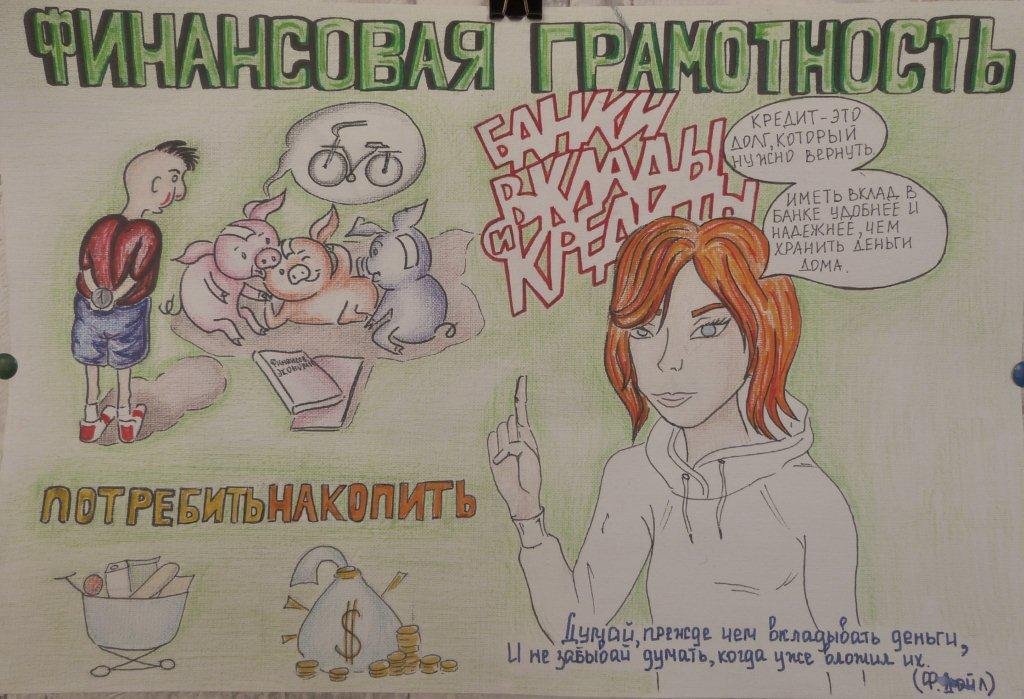 ФИНАНСОВАЯ ГРАМОТНОСТЬ
БАНКИ
ВКЛАДЫ
И КРЕДИТЫ
КРЕДИТ-ЭТО
ДОЛГ, КОТОРЫЙ
НУЖНО ВЕРНУТЬ.
ИМЕТЬ ВКЛАД В
БАНКЕ УДОБНЕЕ И
НАДЕЖНЕЕ, ЧЕМ
ХРАНИТЬ ДЕНЬГИ
ДОМА.
ЭКОНОМИКА
ПОТРЕБИТЬ НАКОПИТЬ
$
Думай, прежде чем вкладывать деньги,
И не забывай думать, когда уже вложил их.
(Ф. Дойл)